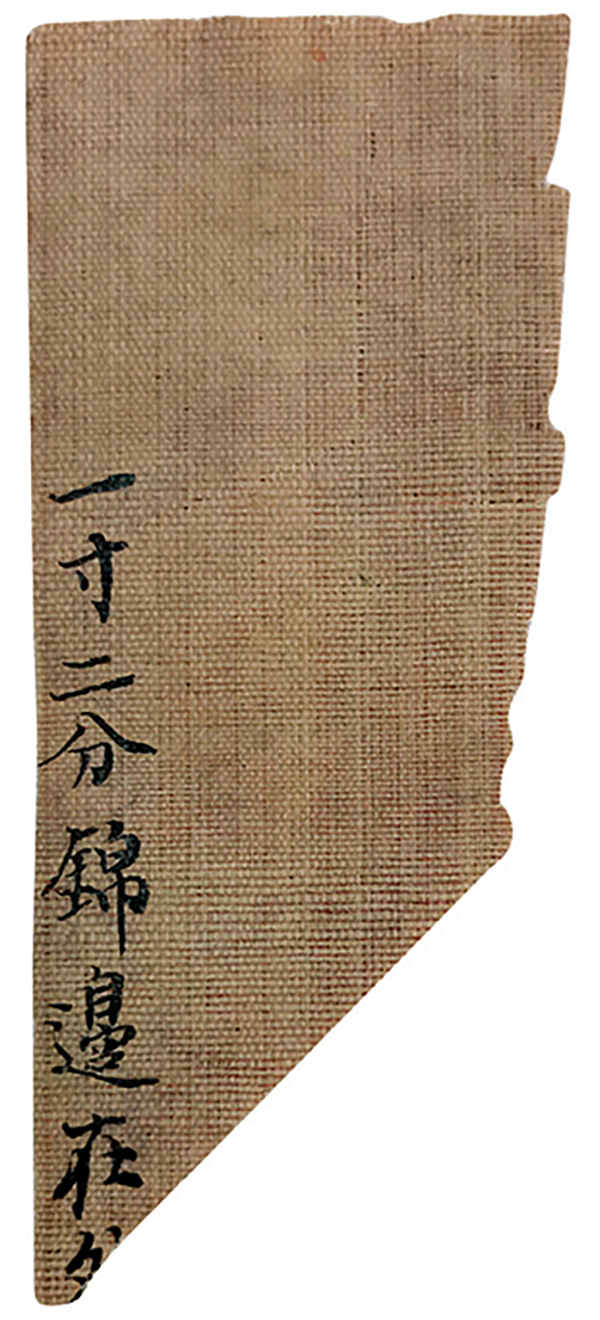 一寸二分錦邊在外